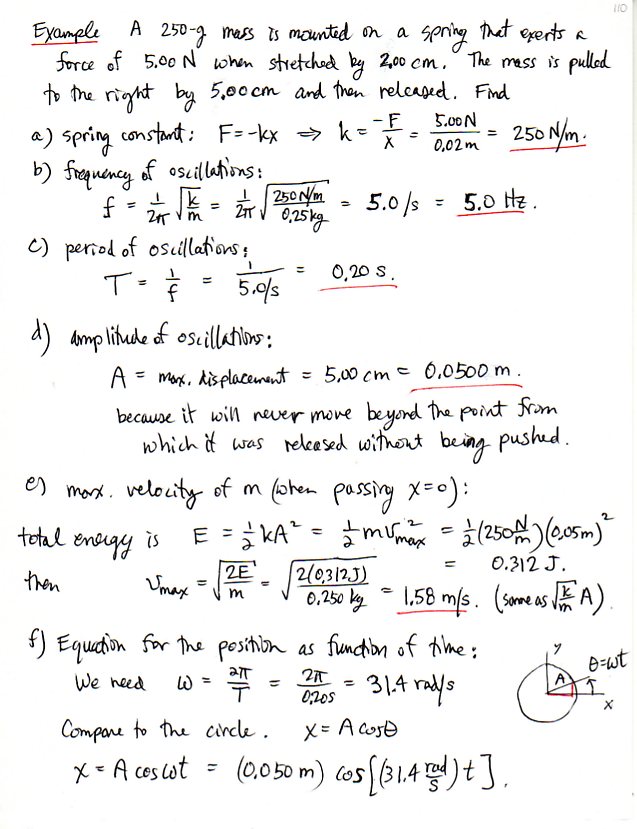 110
Example A 250-g mass is mounted on a spring that exerts a
force of 5.00 N when stretched by 2.00 cm. The mass is pulled
to the right by 5.00 cm and then released. Find
a) spring constant: F = -kx ⇒ k = -F/x = 5.00N/0.02m = 250 N/m.
b) frequency of oscillations:
f = 1/2π √(k/m) = 1/2π √(250 N/m / 0.25kg) = 5.0/s = 5.0 Hz.
c) period of oscillations:
T = 1/f = 1/5.0/s = 0.20 s.
d) amplitude of oscillations:
A = max. displacement = 5.00 cm = 0.0500 m.
because it will never move beyond the point from
which it was released without being pushed.
e) max. velocity of m (when passing x=0):
total energy is E = ½kA² = ½mv²max = ½(250 N/m)(0.05m)²
= 0.312 J.
then vmax = √(2E/m) = √(2(0.312J)/0.250 kg) = 1.58 m/s. (same as √(k/m) A).
f) Equation for the position as function of time:
We need ω = 2π/T = 2π/0.20s = 31.4 rad/s
Compare to the circle. x = A cosθ
x = A cos ωt = (0.050 m) cos[(31.4 rad/s) t].
y
A
θ=ωt
x